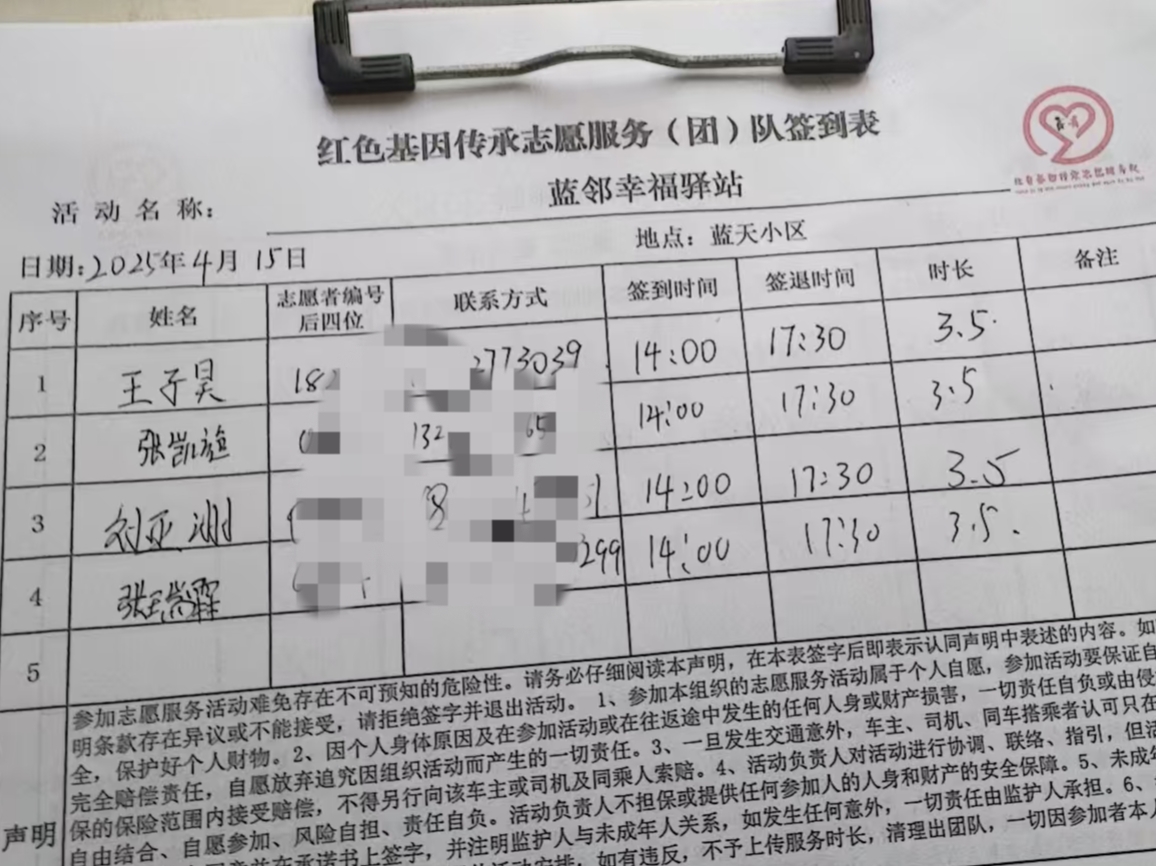 红色基因传承志愿服务（团）队签到表
活动名称： 蓝邻幸福驿站
日期：2025年4月15日 地点：蓝天小区
序号 姓名 志愿者编号后四位 联系方式 签到时间 签退时间 时长 备注
1 王子昊 18 2773039 14:00 17:30 3.5
2 张凯旋 132 65 14:00 17:30 3.5
3 刘亚洲 8 14:00 17:30 3.5
4 张 299 14:00 17:30 3.5
5
声明
参加志愿服务活动难免存在不可预知的危险性。请务必仔细阅读本声明，在本表签字后即表示认同声明中表述的内容。如
明条款存在异议或不能接受，请拒绝签字并退出活动。 1、参加本组织的志愿服务活动属于个人自愿，参加活动要保证自
全，保护好个人财物。2、因个人身体原因及在参加活动或在往返途中发生的任何人身或财产损害，一切责任自负或由侵
完全赔偿责任，自愿放弃追究因组织活动而产生的一切责任。3、一旦发生交通意外，车主、司机、同车搭乘者认可只在
保的保险范围内接受赔偿，不得另行向该车主或司机及同乘人索赔。4、活动负责人对活动进行协调、联络、指引，但活
自由结合、自愿参加、风险自担、责任自负。活动负责人不担保或提供任何参加人的人身和财产的安全保障。5、未成年
意并在承诺书上签字，并注明监护人与未成年人关系，如发生任何意外，一切责任由监护人承担。6、
活动安排，如有违反，不予上传服务时长，清理出团队，一切因参加者本人